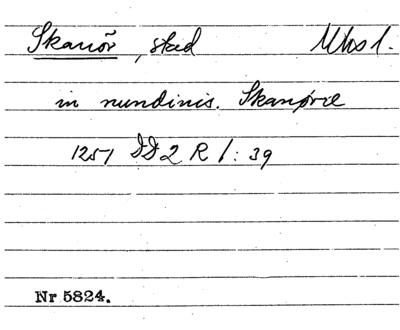 Skanör, stad
in nundinis. Skanøræ
1251 DD 2 R 1: 39
Nr 5824.